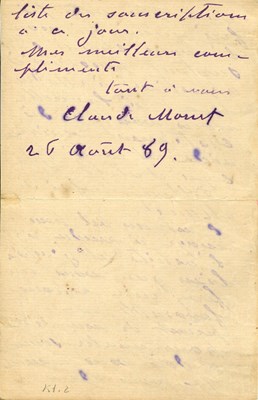 liste des souscriptions
à ce jour.
Mes meilleurs com-
pliments
tout à vous
Claude Monet
26 Août 89.